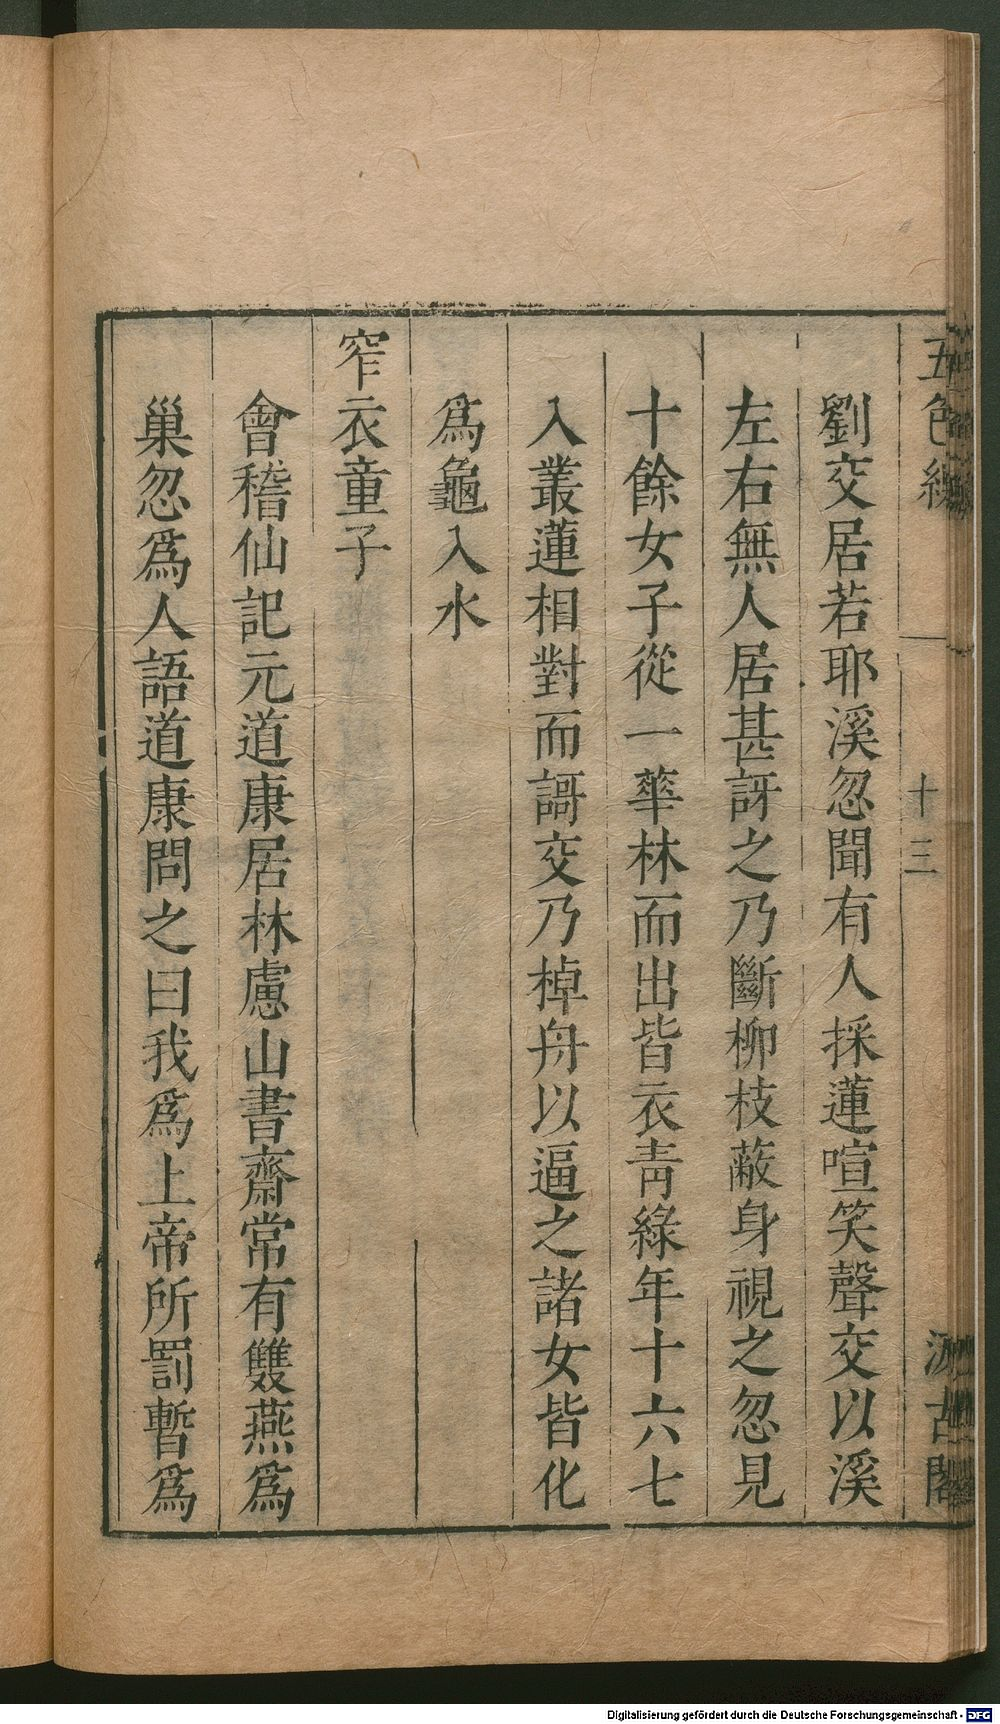 五色線
十三
汲古閣
劉交居若耶溪忽聞有人採蓮喧笑聲交以溪
左右無人居甚訝之乃斷柳枝蔽身視之忽見
十餘女子從一華林而出皆衣靑綠年十六七
入叢蓮相對而謌交乃棹舟以逼之諸女皆化
爲龜入水
窄衣童子
會稽仙記元道康居林慮山書齋常有雙燕爲
巢忽爲人語道康問之曰我爲上帝所罰暫爲
Digitalisierung gefördert durch die Deutsche Forschungsgemeinschaft - DFG